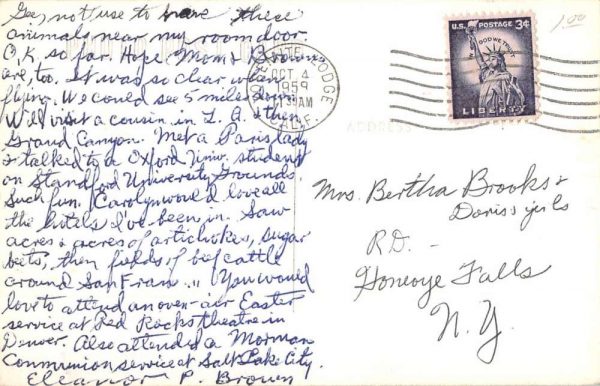 Gee, not use to have these
animals near my room door.
O,K. so far. Hope Mom & Brown
are, too. It was so clear when
flying. We could see 5 miles down.
We'll visit a cousin in L. A. & then
Grand Canyon. Met a Paris lady
& talked to a Oxford Univ. student
on Standford University Grounds.
Such fun. Carolyn would love all
the hotels I've been in. Saw
acres & acres of artichokes, sugar
beets, then fields of beef cattle
around San Fran... You would
love to attend an over-air Easter
service at Red Rocks theatre in
Denver. Also attended a Morman
Communion service at Salt Lake City.
Eleanor P. Brown
LODGE
OCT 4
1959
AM
CALIF.
U.S. POSTAGE 3¢
IN GOD WE TRUST
LIBERTY
1.00
ADDRESS
Mrs. Bertha Brooks &
Doris & girls
RD. -
Honeoye Falls
N. Y.